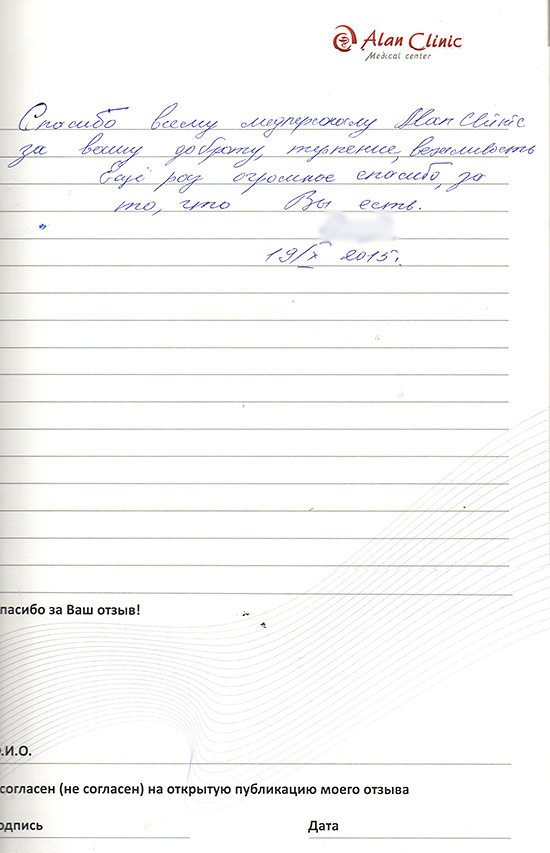 Alan Clinic
Medical center
Спасибо всему медперсоналу Alan Clinic
за вашу доброту, терпение, вежливость
Ещё раз огромное спасибо, за
то, что Вы есть.
19/X 2015г.
пасибо за Ваш отзыв!
.И.О.
согласен (не согласен) на открытую публикацию моего отзыва
одпись Дата